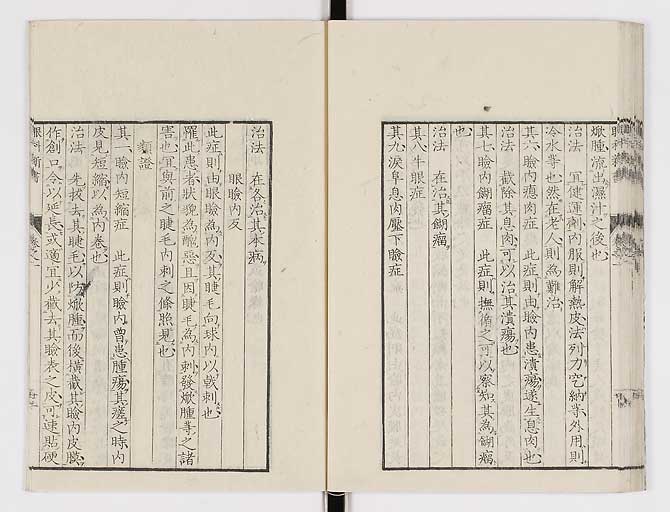 焮腫流出濕汁之後也
治法　宜健運劑內服則解熱皮法列力究納等外用則
冷水等也然在老人則為難治
其六瞼內瘜肉症　此症則由瞼內患潰瘍遂生息肉也
治法　截除其息肉可以治其潰瘍也
其七瞼內餬瘤症　此症則撫循之可以察知其為餬瘤
也
治法　在治其餬瘤
其八牛眼症
其九淚阜息肉壓下瞼症
治法　在各治其本病
眼瞼內反
此症則由眼瞼為內反其睫毛向球內以戟刺也
罹此患者狀貌為醜惡且因睫毛為內刺發焮腫等之諸
害也宜與前之睫毛內刺之條照見也
類證
其一瞼內短縮症　此症則瞼內曾患腫瘍其瘥之時內
皮見短縮以為內卷也
治法　先拔去其睫毛以防焮腫而後橫截其瞼內皮膜
作創口令以延長或適宜少截去其瞼表之皮可速貼硬
眼科新書
卷之一